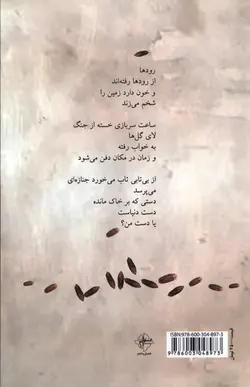 رودها
از رودها رفته‌اند
و خون دارد زمین را
شخم می‌زند
ساعت سربازی خسته از جنگ
لای گل‌ها
به خواب رفته
و زمان در مکان دفن می‌شود
از بی‌تابی تاب می‌خورد جنازه‌ای
می‌پرسد
دستی که بر خاک مانده
دست دنیاست
یا دست من؟
ISBN: 978-600-304-897-3
9 786003 048973